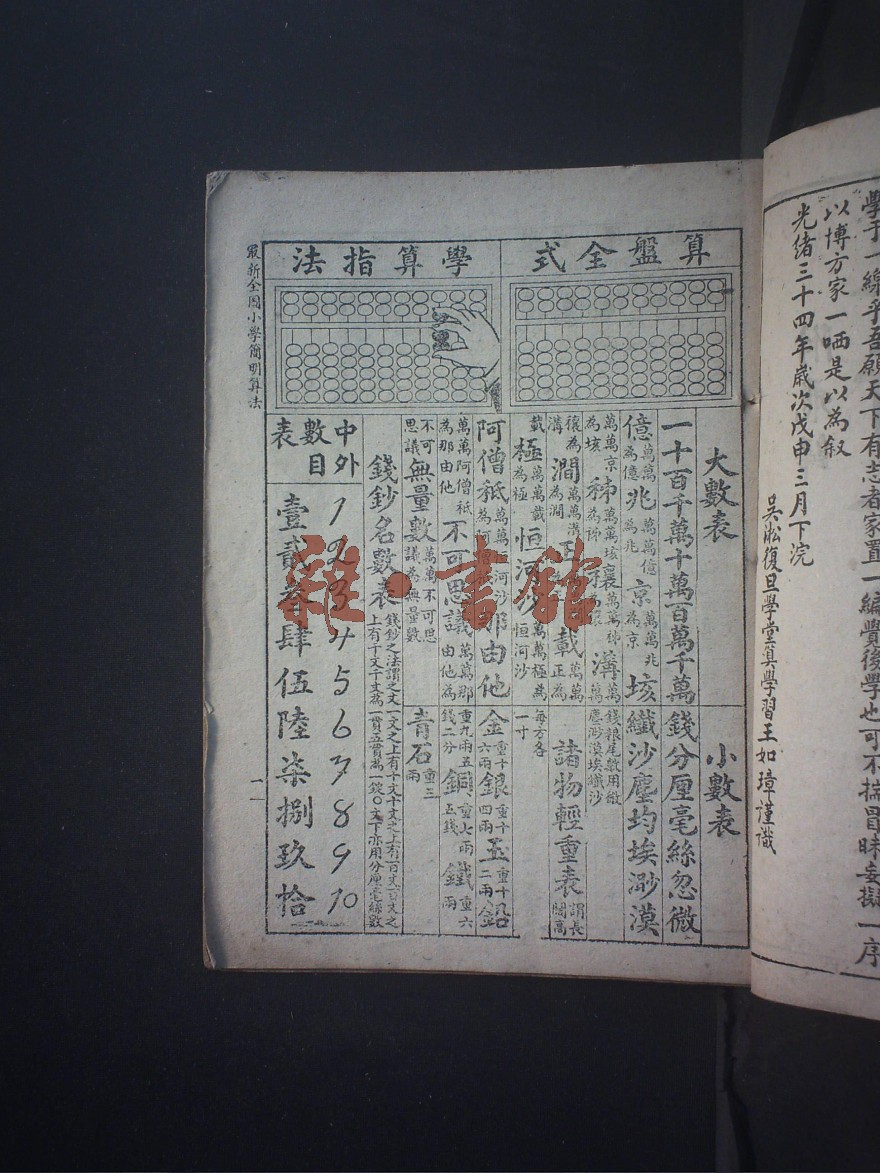 學于一線乎吾願天下有志者家置一編費後學也可不揣冒昧妄擬一序
以博方家一哂是以為叙
光緒三十四年歲次戊申三月下浣
吳淞復旦學堂算學習王如璋謹識
算盤全式
學算指法
大數表
一十百千萬十萬百萬千萬
億萬萬為億兆萬萬億為兆京萬萬兆為京垓
萬萬京為垓秭萬萬垓為秭穰萬萬秭為穰溝萬萬
穰為溝澗萬萬溝為澗正載萬萬正為
載極萬萬載為極恒河沙萬萬極為恒河沙
阿僧秖萬萬恒河沙為阿僧秖那由他
萬萬阿僧秖為那由他不可思議萬萬那由他為
不可思議無量數萬萬不可思議為無量數
小數表
錢分厘毫絲忽微
纖沙塵均埃渺漠
錢糧尾數用微塵渺漠埃纖沙
諸物輕重表謂長闊高
每方各一寸
金重十六兩銀重十四兩玉重十二兩鉛
重九兩五錢二分銅重七兩五錢鐵重六兩
青石重三兩
錢鈔名數表錢鈔之法謂之文一文之上有十文十文之上有百文百文之
上有千文千文為一貫五貫為一錠〇文下亦用分厘毫絲數
中外數目表
1 2 3 4 5 6 7 8 9 10
壹貳叁肆伍陸柒捌玖拾
最新全圖小學簡明算法
二
雜·書館